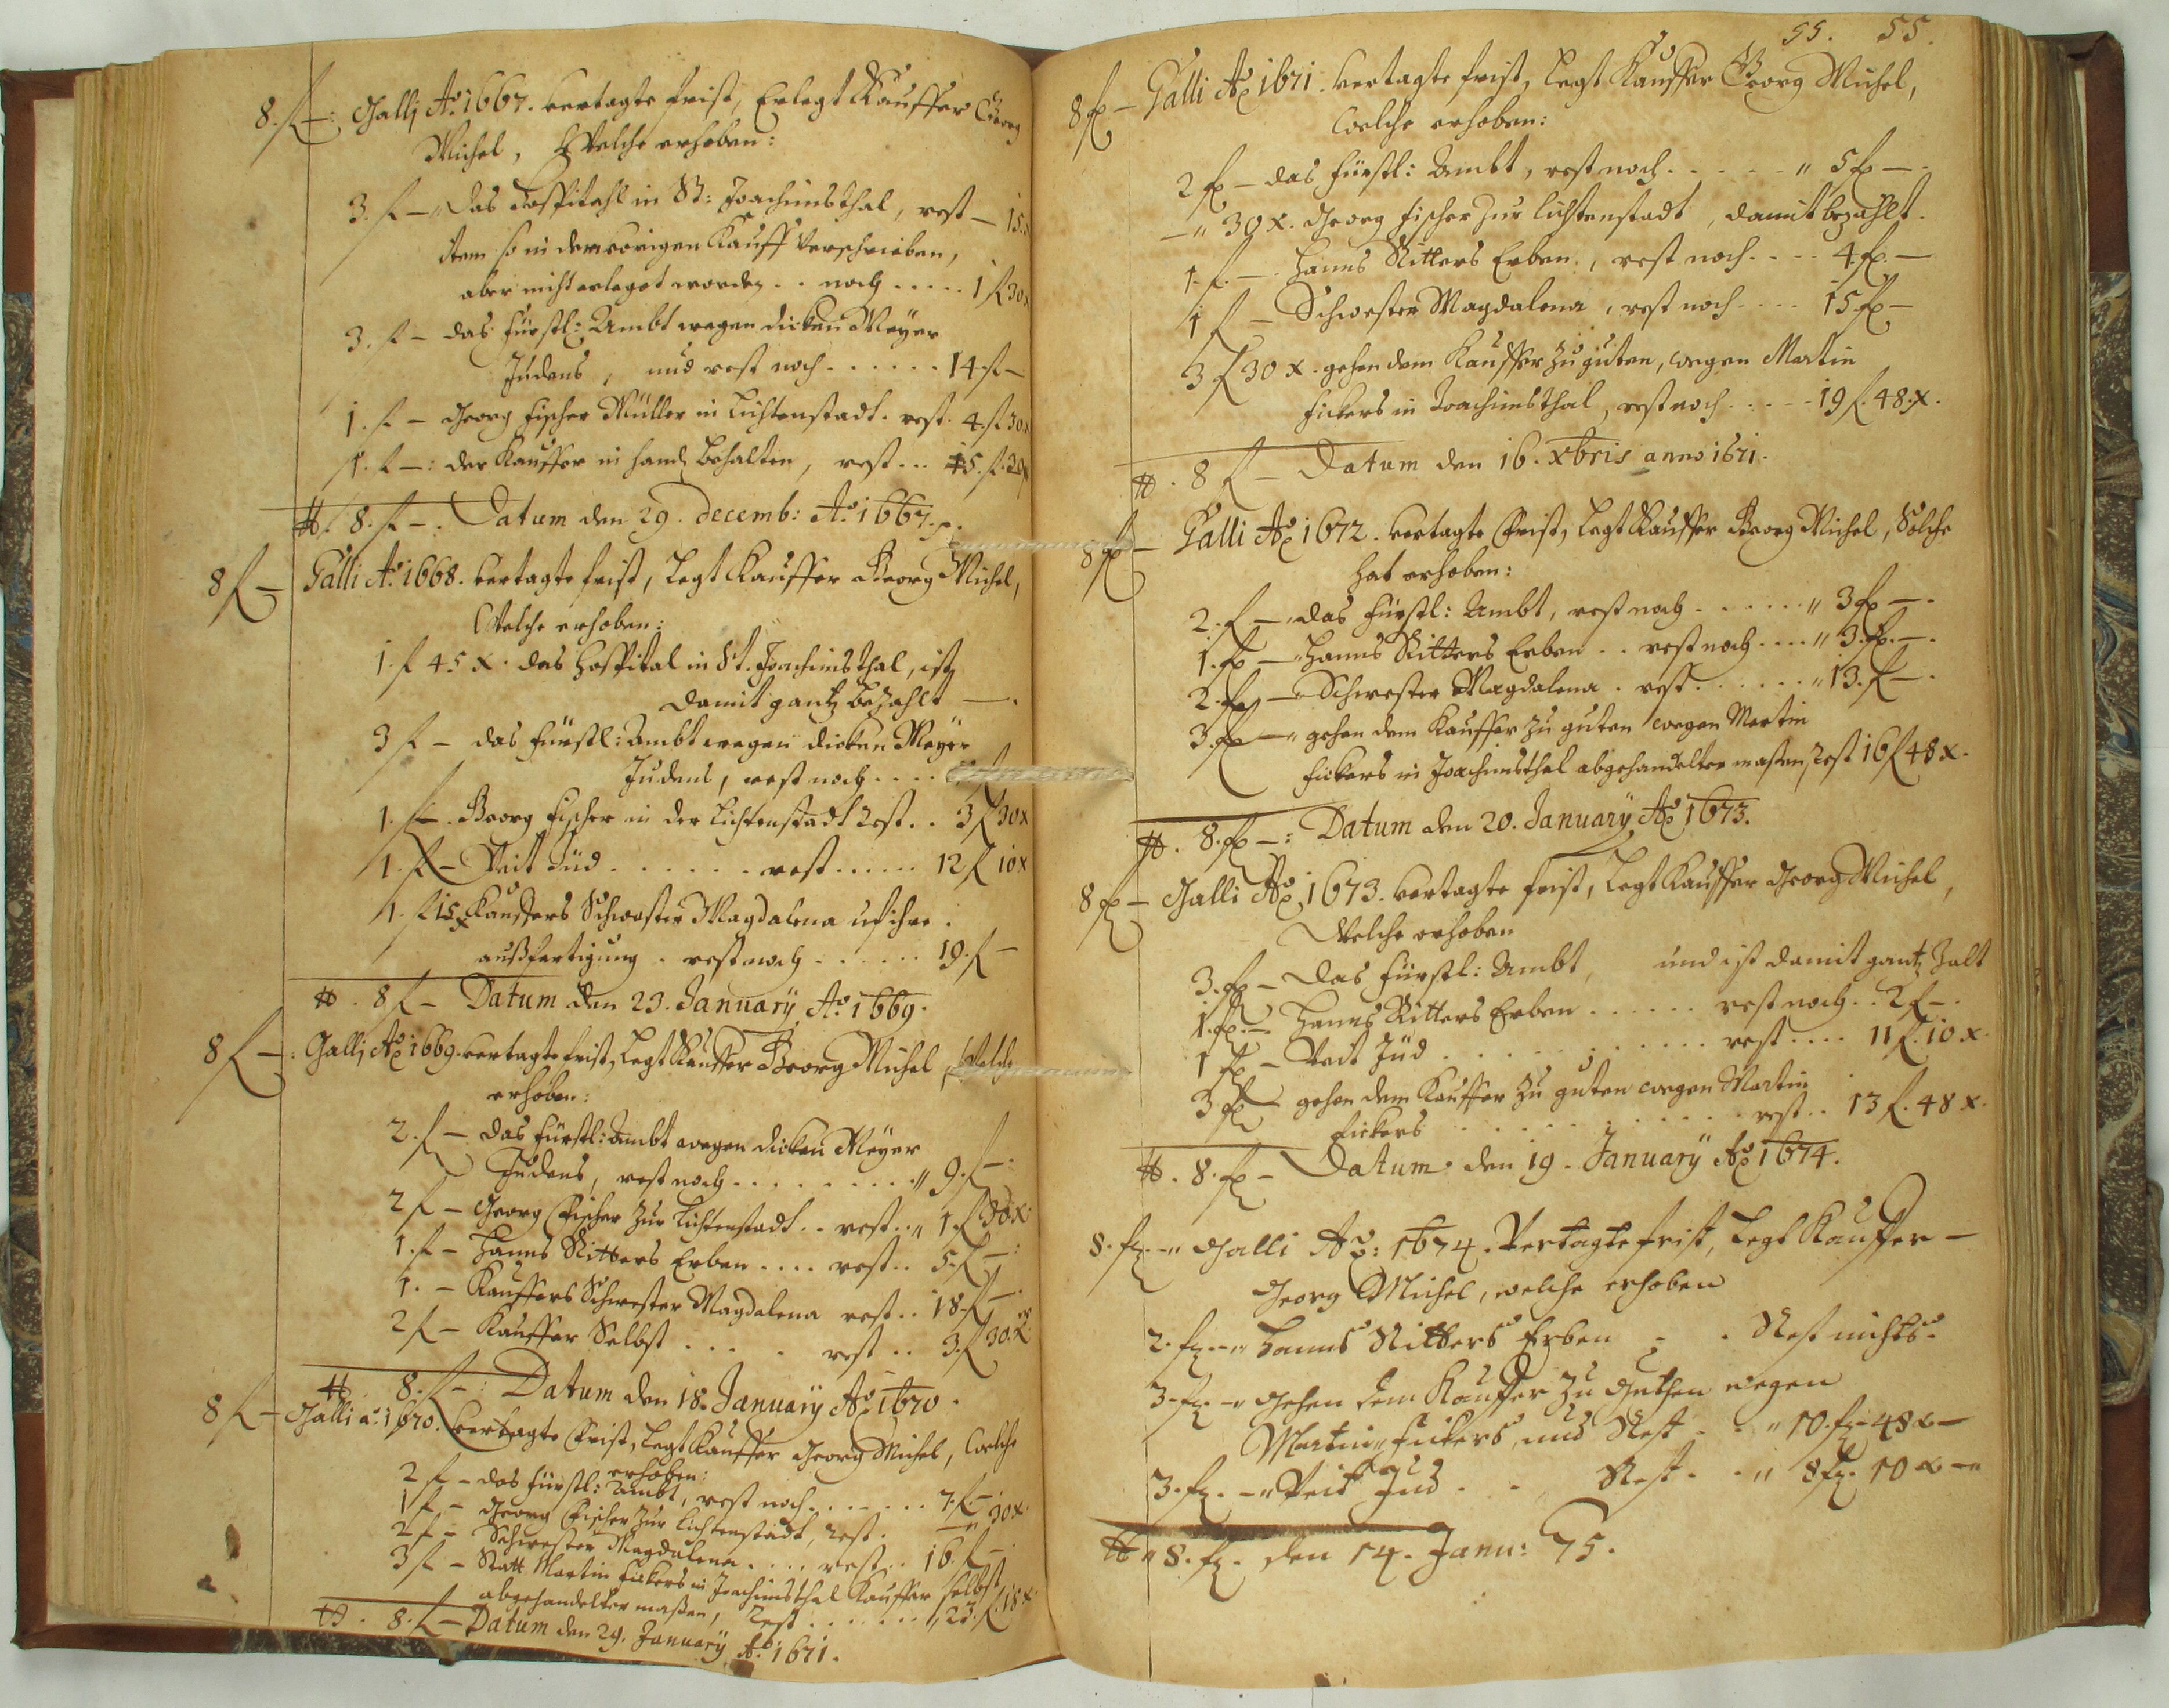 8. f — : Gallj Aō 1667. vertagte frist, Erlegt Kauffer Georg
Michel, Welche erhoben:
3. f — " das Hospitahl in St: Joachimsthal, rest — 15.
Item so in dem vorigen Kauff verschrieben,
aber nicht erleget worden . . noch . . . . . 1 f 30 x
3. f — das fürstl: Ambt wegen dicken Meÿer
Judens, und rest noch . . . . . . 14 f —
1. f — Georg Fischer Müller in Lichtenstadt. rest. 4. f 30 x
1. f — : der Kauffer in handen behalten, rest . . . 5. f. 30 x
8. f — . Datum den 29. decemb: Aō 1667.
8 f — Galli Aō 1668. vertagte frist, Legt Kauffer Georg Michel,
Welche erhoben:
1. f 45 x. das Hospital in St. Joachimsthal, ist
damit gantz bezahlt — .
3 f — das fürstl: Ambt wegen dicken Meÿer
Judens, rest noch . . . .
1. f — . Georg Fischer in der Lichtenstadt Rest . . 3 f 30 x
1. f — Veit Jüd . . . . . . rest . . . . . 12 f 10 x
1. f 15 x Kauffers Schwester Magdalena uf ihre
außfertigung . rest noch . . . . . . 19. f —
8 f — Datum den 23. Januarÿ Aō 1669.
8 f — : Gallj Aō 1669. vertagte frist, Legt Kauffer Georg Michel, Welche
erhoben:
2. f — das fürstl: Ambt wegen dicken Meÿer
Judens, rest noch . . . . . . . . . " 9. f — :
2 f — Georg Fischer zur Lichtenstadt . . rest . . " 1. f 30 x.
1. f — Hanns Ritters Erben . . . . rest . . 5. f — :
1. — Kauffers Schwester Magdalena rest . . 18. f — .
2 f — Kauffer Selbst . . . . rest . . 3. f 30. x
8. f — : Datum den 18. Januarÿ Aō 1670.
8 f — Galli aō 1670. vertagte frist, Legt Kauffer Georg Michel, Welche
erhoben:
2 f — das fürstl: Ambt, rest noch . . . . . . 7. f — .
1 f — Georg Fischer zur Lichtenstadt, Rest . — " 30 x.
2 f — Schwester Magdalena . . . . rest . . 16. f — .
3 f — Statt Martin Fickers in Joachimsthal Kauffer selbst
abgehandelter maßen, Rest . . . . . . " 23. f. 18 x.
8. f — Datum den 29. Januarÿ Aō 1671.
55. 55.
8 f — Galli Aō 1671. vertagte frist, Legt Kauffer Georg Michel,
Welche erhoben:
2 f — das fürstl: Ambt, rest noch . . . . . " 5 f — .
— " 30 x. Georg Fischer zur Lichtenstadt, damit bezahlt.
1. f. — . Hanns Ritters Erben, rest noch . . . . 4. f. —
1 f — Schwester Magdalena, rest noch . . . . 15 f —
3 f 30 x. gehen dem Kauffer zu guten, wegen Martin
Fickers in Joachimsthal, rest noch . . . . . 19 f. 48. x.
8 f — Datum den 16. Xbris anno 1671.
8 f — Galli Aō 1672. vertagte Frist, Legt Kauffer Georg Michel, Solche
hat erhoben:
2. f — " das fürstl: Ambt, rest noch . . . . . . " 3 f — .
1. f — " Hanns Ritters Erben . . rest noch . . . . " 3. f. — .
2. f — " Schwester Magdalena . rest . . . . . . " 13. f — .
3. f — " gehen dem Kauffer zu guten wegen Martin
Fickers in Joachimsthal abgehandelter maßen, Rest 16 f 48 x.
8. f — : Datum den 20. Januarÿ Aō 1673.
8 f — Galli Aō 1673. vertagte frist, Legt Kauffer Georg Michel,
Welche erhoben
3. f — das fürstl: Ambt, und ist damit gantz Zalt
1. f. — . Hanns Ritters Erben . . . . . . rest noch . . 2 f — .
1 f — Veit Jüd . . . . . . . . . . . rest . . . . 11 f. 10 x.
3 f gehen dem Kauffer zu guten wegen Martin
Fickers . . . . . . . . . . rest . . 13 f. 48 x.
8. f — Datum den 19. Januarÿ Aō 1674.
8. f. — " Galli Aō: 1674. Vertagte frist, Legt Kauffer —
Georg Michel, welche erhoben
2. f. — " Hanns Ritters Erben . . Rest nichts.
3. f. — " Gehen dem Kauffer zu Guthen wegen
Martin Fickers, und Rest . . " 10. f. 48 x —
3. f. — " Veit Jud . . . Rest . . " 8 f. 10 x — "
" 8. f. den 14. Janu: 75.